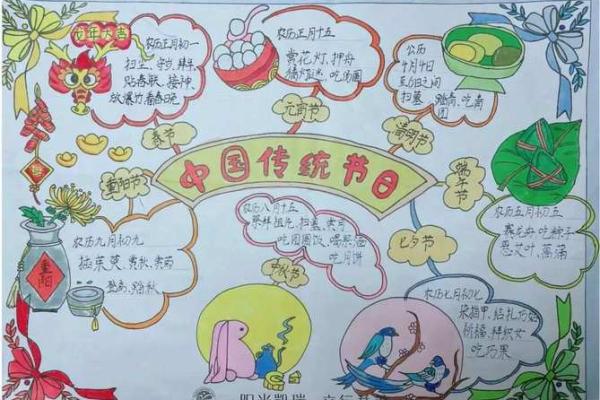 龙年大吉
农历正月初一
扫尘、守岁、拜年
贴春联、接神、
放爆竹看春晚
春节
农历正月十五
赏花灯、押舟
猜灯谜、吃汤圆
元宵节
公历
4月4日
至6日之间
扫墓、踏青、吃青
团
清明节
中国传统节日
重阳节
农历九月初九
插茱萸、赏秋、赏菊
登高、踏秋
重阳
农历八月十五
祭拜祖先、扫墓、赏月
吃团圆饭、喝
吃月饼
中秋节
端午节
农历五月初五
赛龙舟、吃粽子
悬艾叶、菖蒲
七夕节
农历七月初七
染指甲、结扎巧姑
祈福、拜织女
吃巧果